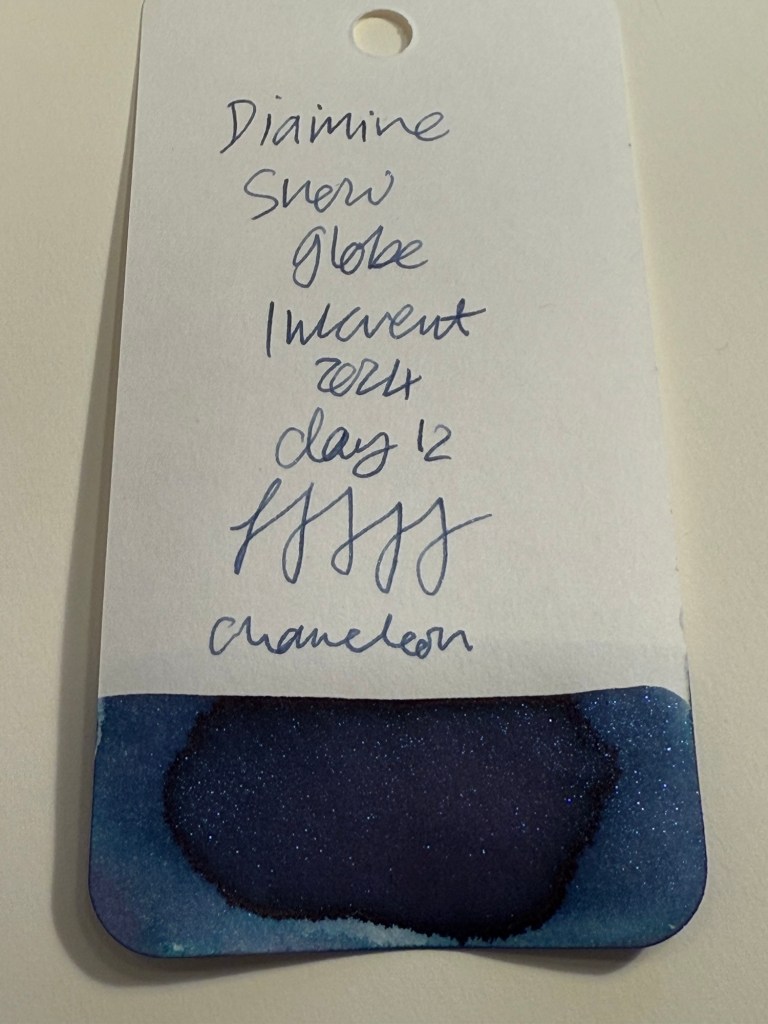 Diamine
Snow
globe
Inkvent
2024
day 12
chameleon